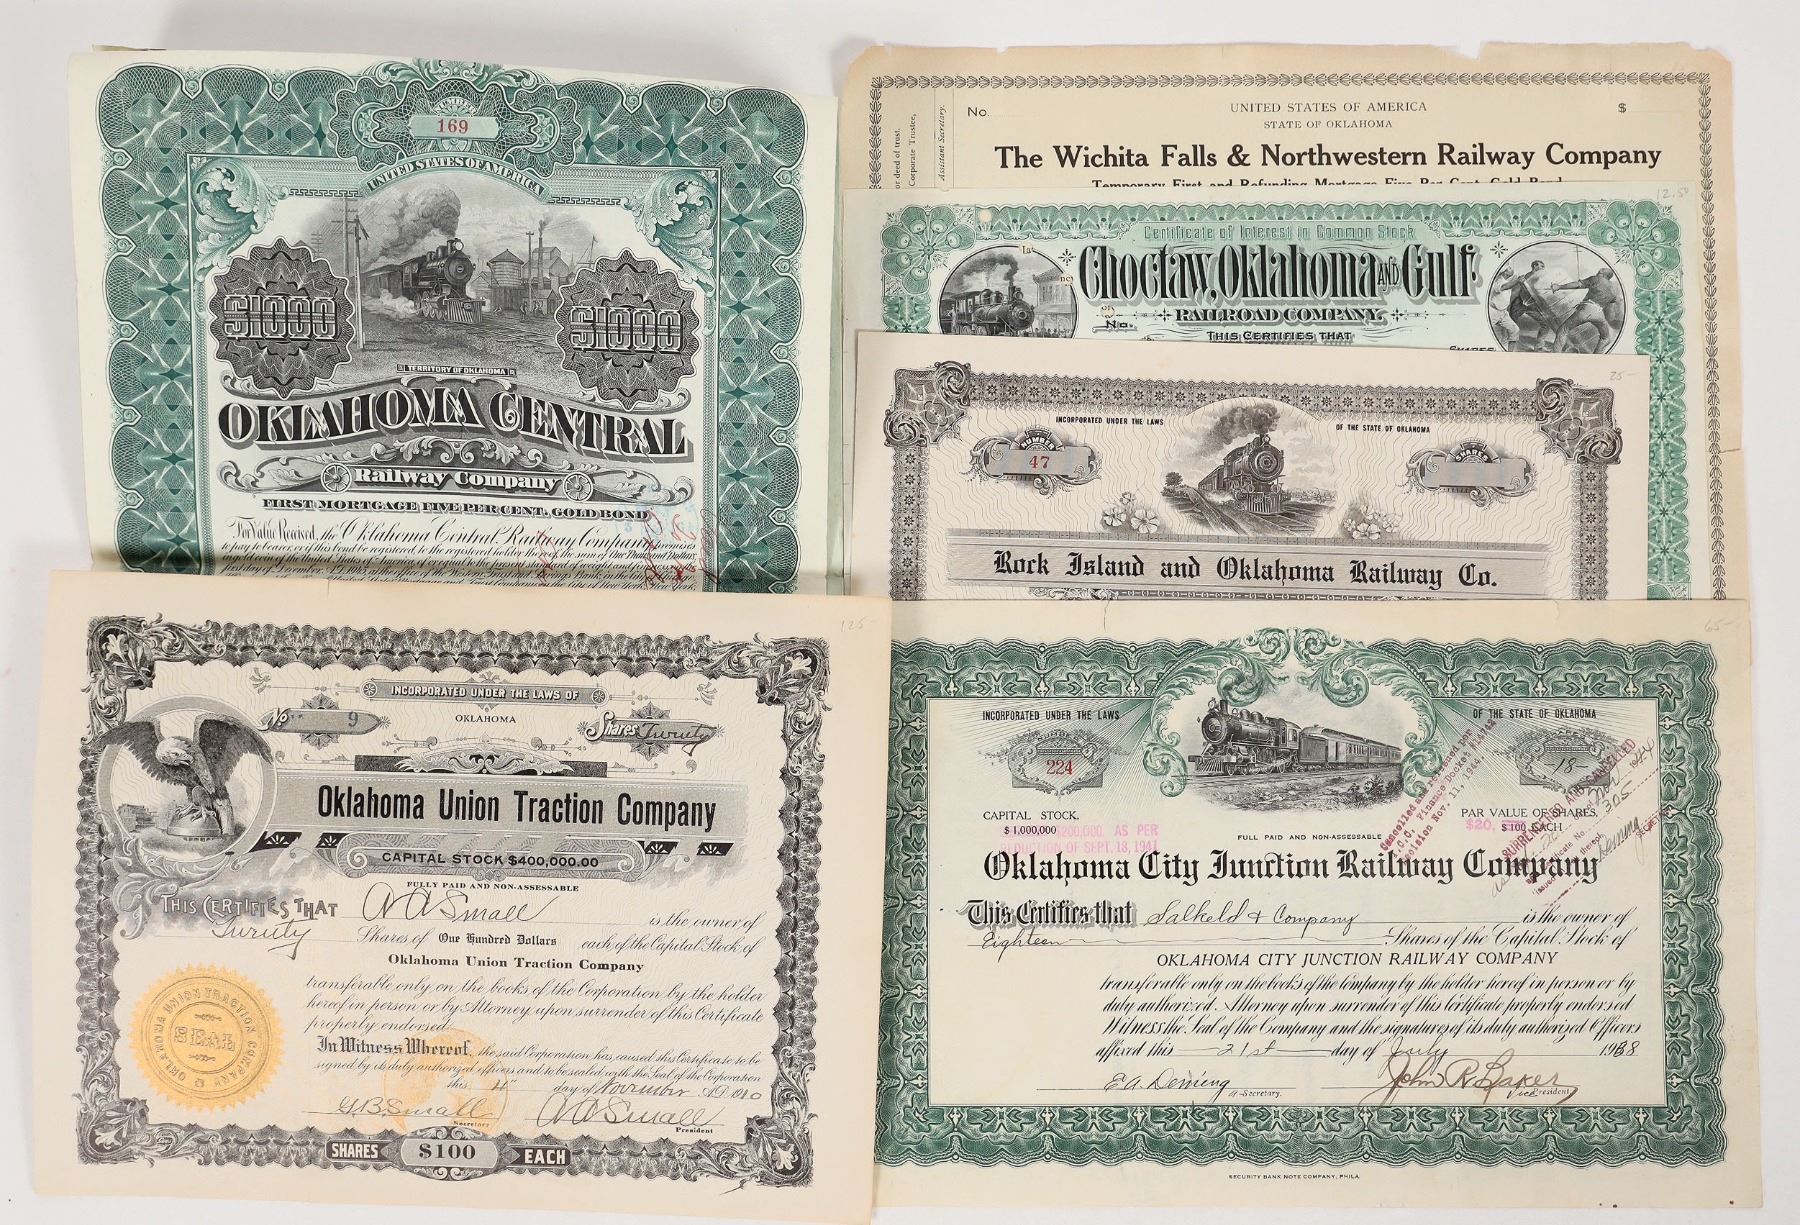 NUMBER
169
UNITED STATES OF AMERICA
$1000
$1000
TERRITORY OF OKLAHOMA
OKLAHOMA CENTRAL
Railway Company
FIRST MORTGAGE FIVE PER CENT. GOLD BOND
For Value Received, the Oklahoma Central Railway Company promises
to pay to bearer, or if this bond be registered, to the registered holder thereof, the sum of One Thousand Dollars
or deed of trust.
Corporate Trustee,
Assistant Secretary.
No.
UNITED STATES OF AMERICA
$
STATE OF OKLAHOMA
The Wichita Falls & Northwestern Railway Company
Temporary First and Refunding Mortgage Five Per Cent. Gold Bond
12.50
Certificate of Interest in Common Stock
Choctaw, Oklahoma AND Gulf
RAILROAD COMPANY.
No.
THIS CERTIFIES THAT
SHARES
25-
INCORPORATED UNDER THE LAWS
OF THE STATE OF OKLAHOMA
NUMBER
47
SHARES
Rock Island and Oklahoma Railway Co.
125-
INCORPORATED UNDER THE LAWS OF
OKLAHOMA
No 9
Shares Twenty
Oklahoma Union Traction Company
CAPITAL STOCK $400,000.00
FULLY PAID AND NON-ASSESSABLE
THIS CERTIFIES THAT A A Small is the owner of
Twenty Shares of One Hundred Dollars each of the Capital Stock of
Oklahoma Union Traction Company
transferable only on the books of the Corporation by the holder
hereof in person or by Attorney, upon surrender of this Certificate
properly endorsed.
In Witness Whereof, the said Corporation has caused this Certificate to be
signed by its duly authorized officers and to be sealed with the Seal of the Corporation
this 4" day of November A.D. 1910
G.B. Small
Secretary
A A Small
President
OKLAHOMA UNION TRACTION COMPANY
SEAL
SHARES $100 EACH
65-
INCORPORATED UNDER THE LAWS
OF THE STATE OF OKLAHOMA
224
18
CAPITAL STOCK,
$1,000,000
$200,000. AS PER
REDUCTION OF SEPT. 18, 1941
FULL PAID AND NON-ASSESSABLE
PAR VALUE OF SHARES,
$20. $100 EACH
SURRENDERED AND CANCELLED
Oklahoma City Junction Railway Company
This Certifies that Salkeld & Company is the owner of
Eighteen Shares of the Capital Stock of
OKLAHOMA CITY JUNCTION RAILWAY COMPANY
transferable only on the books of the Company by the holder hereof in person or by
duly authorized Attorney upon surrender of this Certificate properly endorsed
Witness the Seal of the Company and the signatures of its duly authorized Officers
affixed this 21st day of July 1938
E A Deming
a-Secretary.
John R Baker
Vice President
SECURITY BANK NOTE COMPANY, PHILA.